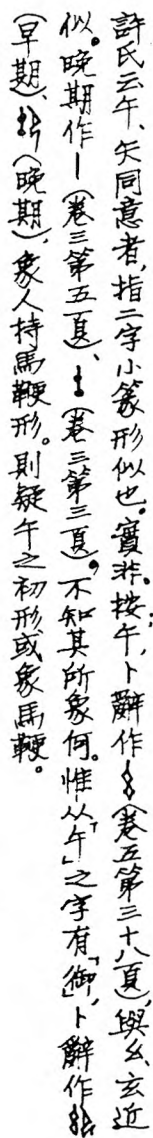 許氏云午、矢同意者,指二字小篆形似也。實非。按:午,卜辭作(卷五第三十八頁),與幺、玄近
似。晚期作(卷三第五頁)、(卷三第三頁),不知其所象何。惟从「午」之字有「御」,卜辭作
(早期)、(晚期),象人持馬鞭形。則疑午之初形,或象馬鞭。